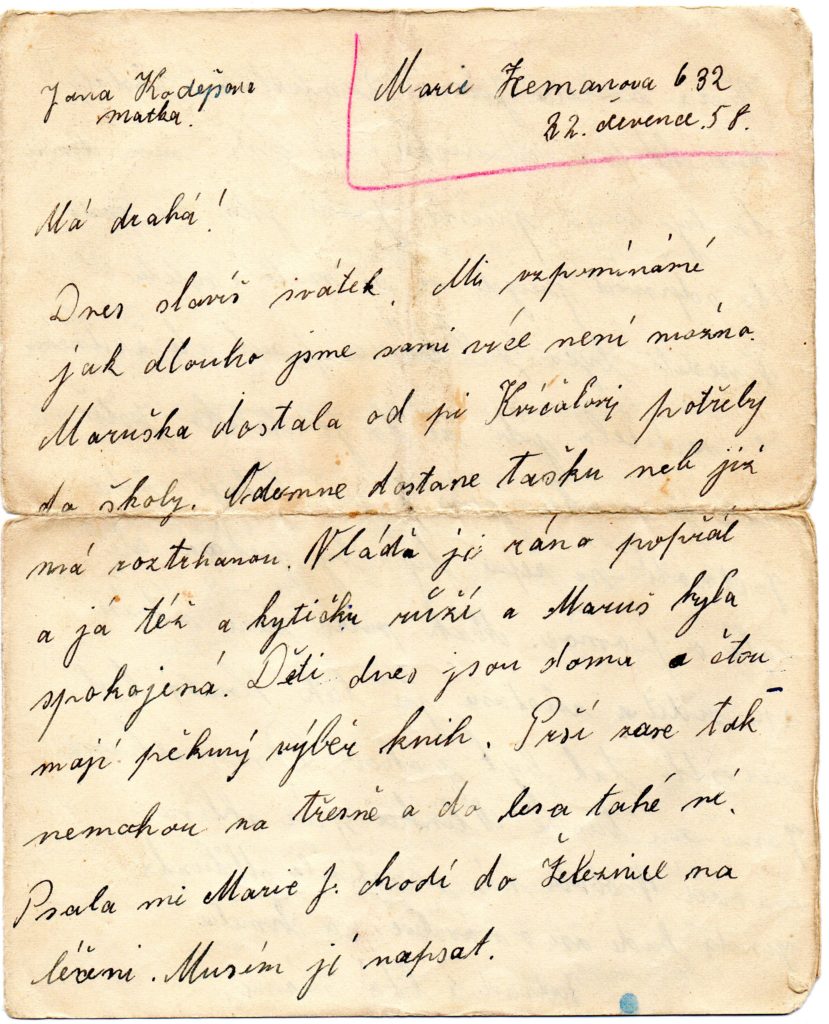 Jana Kodešova
matka.
Marie Zemanova 632
22. července. 58.
Má drahá!
Dnes slavíš svátek. Mi vzpomínámé
jak dlouho jsme sami více není možno.
Maruška dostala od pí Kvíčalovi potřeby
do školy. Odemne dostane tašku neb již
má roztrhanou. Vláďa jí ráno popřál
a já též a kytičku růží a Maruš byla
spokojená. Děti dnes jsou doma a čtou
mají pěkný výběr knih. Prší zase tak
nemohou na třesně a do lesa také né.
Psala mi Marie J. chodí do Železnice na
léčeni. Musím jí napsat.